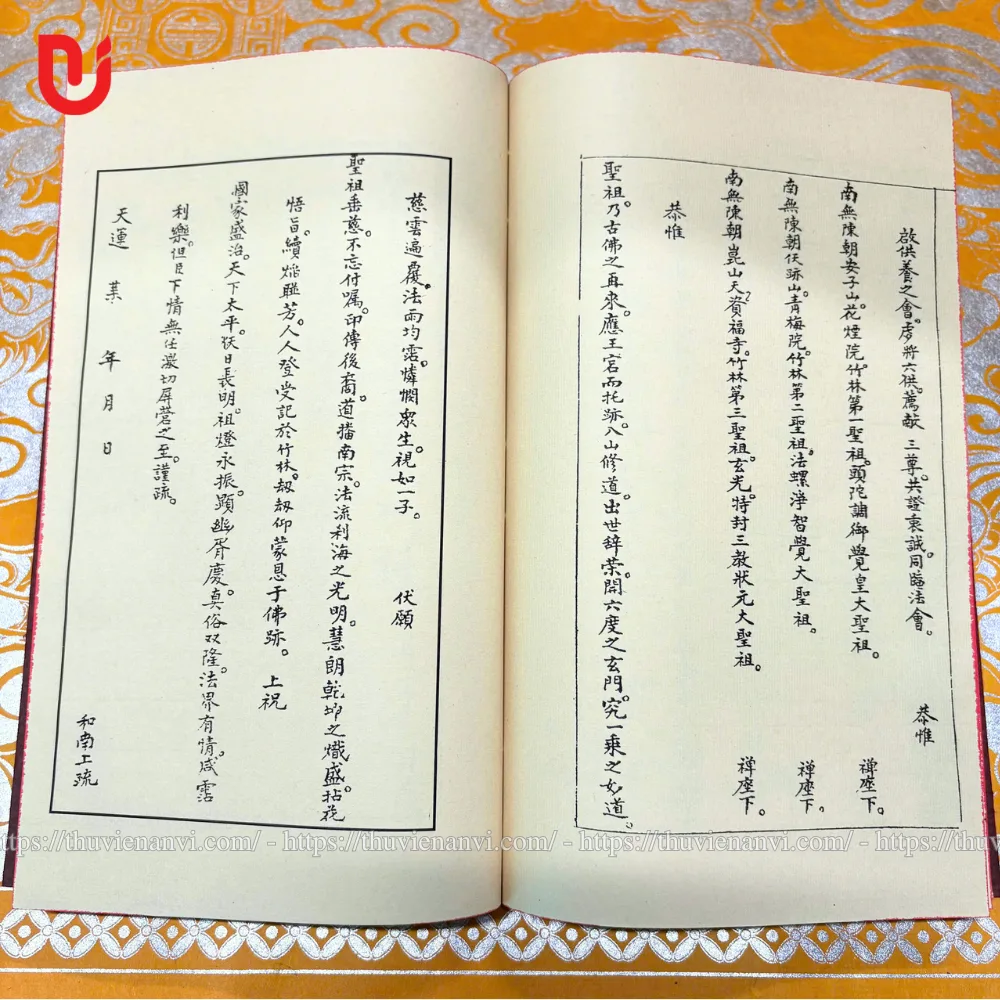 啟供養之會。虔將六供。薦献 三尊。共證衷誠。同臨法會。 恭惟
南無陳朝安子山。花煙院。竹林第一聖祖。頭陀調御覺皇大聖祖。 禅座下。
南無陳朝伏跡山。青梅院。竹林第二聖祖。法螺淨智覺大聖祖。 禅座下。
南無陳朝崑山天資福寺。竹林第三聖祖玄光。特封三教狀元大聖祖。 禅座下。
恭惟
聖祖。乃古佛之再來。應王宮而托跡。入山修道。出世辞荣。開六度之玄門。究一乘之妙道。
慈雲遍覆。法雨均霑。憐憫眾生。視如一子。 伏願
聖祖垂慈。不忘付囑。印傳後裔。道播南宗。法流利海之光明。慧朗乾坤之熾盛。拈花
悟旨。續焰聮芳。人人登受記於竹林。劫劫仰蒙恩于佛跡。 上祝
國家盛治。天下太平。佛日長明。祖燈永振。顕幽胥慶。真俗双隆。法界有情。咸霑
利樂。但臣下情無任激切屏營之至。謹疏。
天運 某 年 月 日
和南上疏
https://thuvienanvi.com/ - https://thuvienanvi.com/ - https://thuvienanvi.com/ - https://thuvienanvi.com/